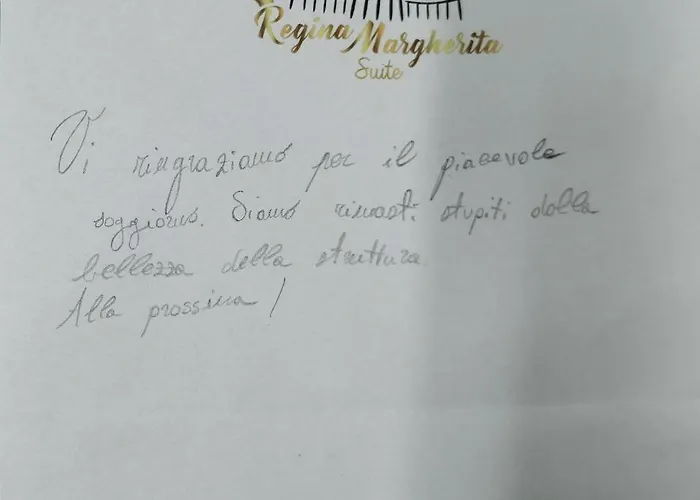 Regina Margherita
Suite
Vi ringraziamo per il piacevole
soggiorno. Siamo rimasti stupiti dalla
bellezza della struttura
Alla prossima!